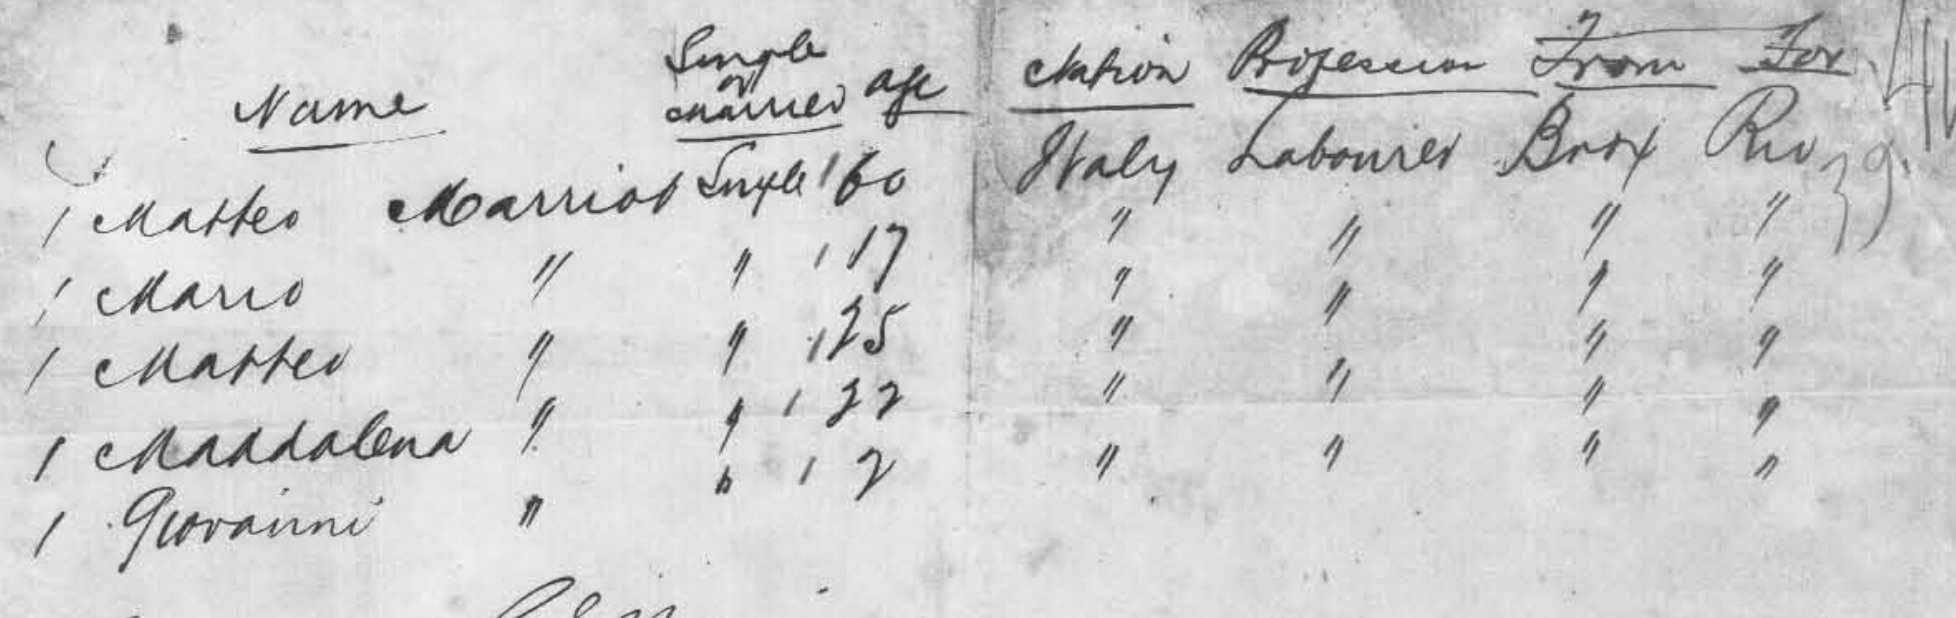 Name Single or Married Age Nation Profession From For
1 Matteo Marriot Single 1 60 Italy Labourer Bdx Rio
1 Mario " " 1 17 " " " "
1 Matteo " " 1 25 " " " "
1 Maddalena " " 1 22 " " " "
1 Giovanni " " 1 2 " " " "